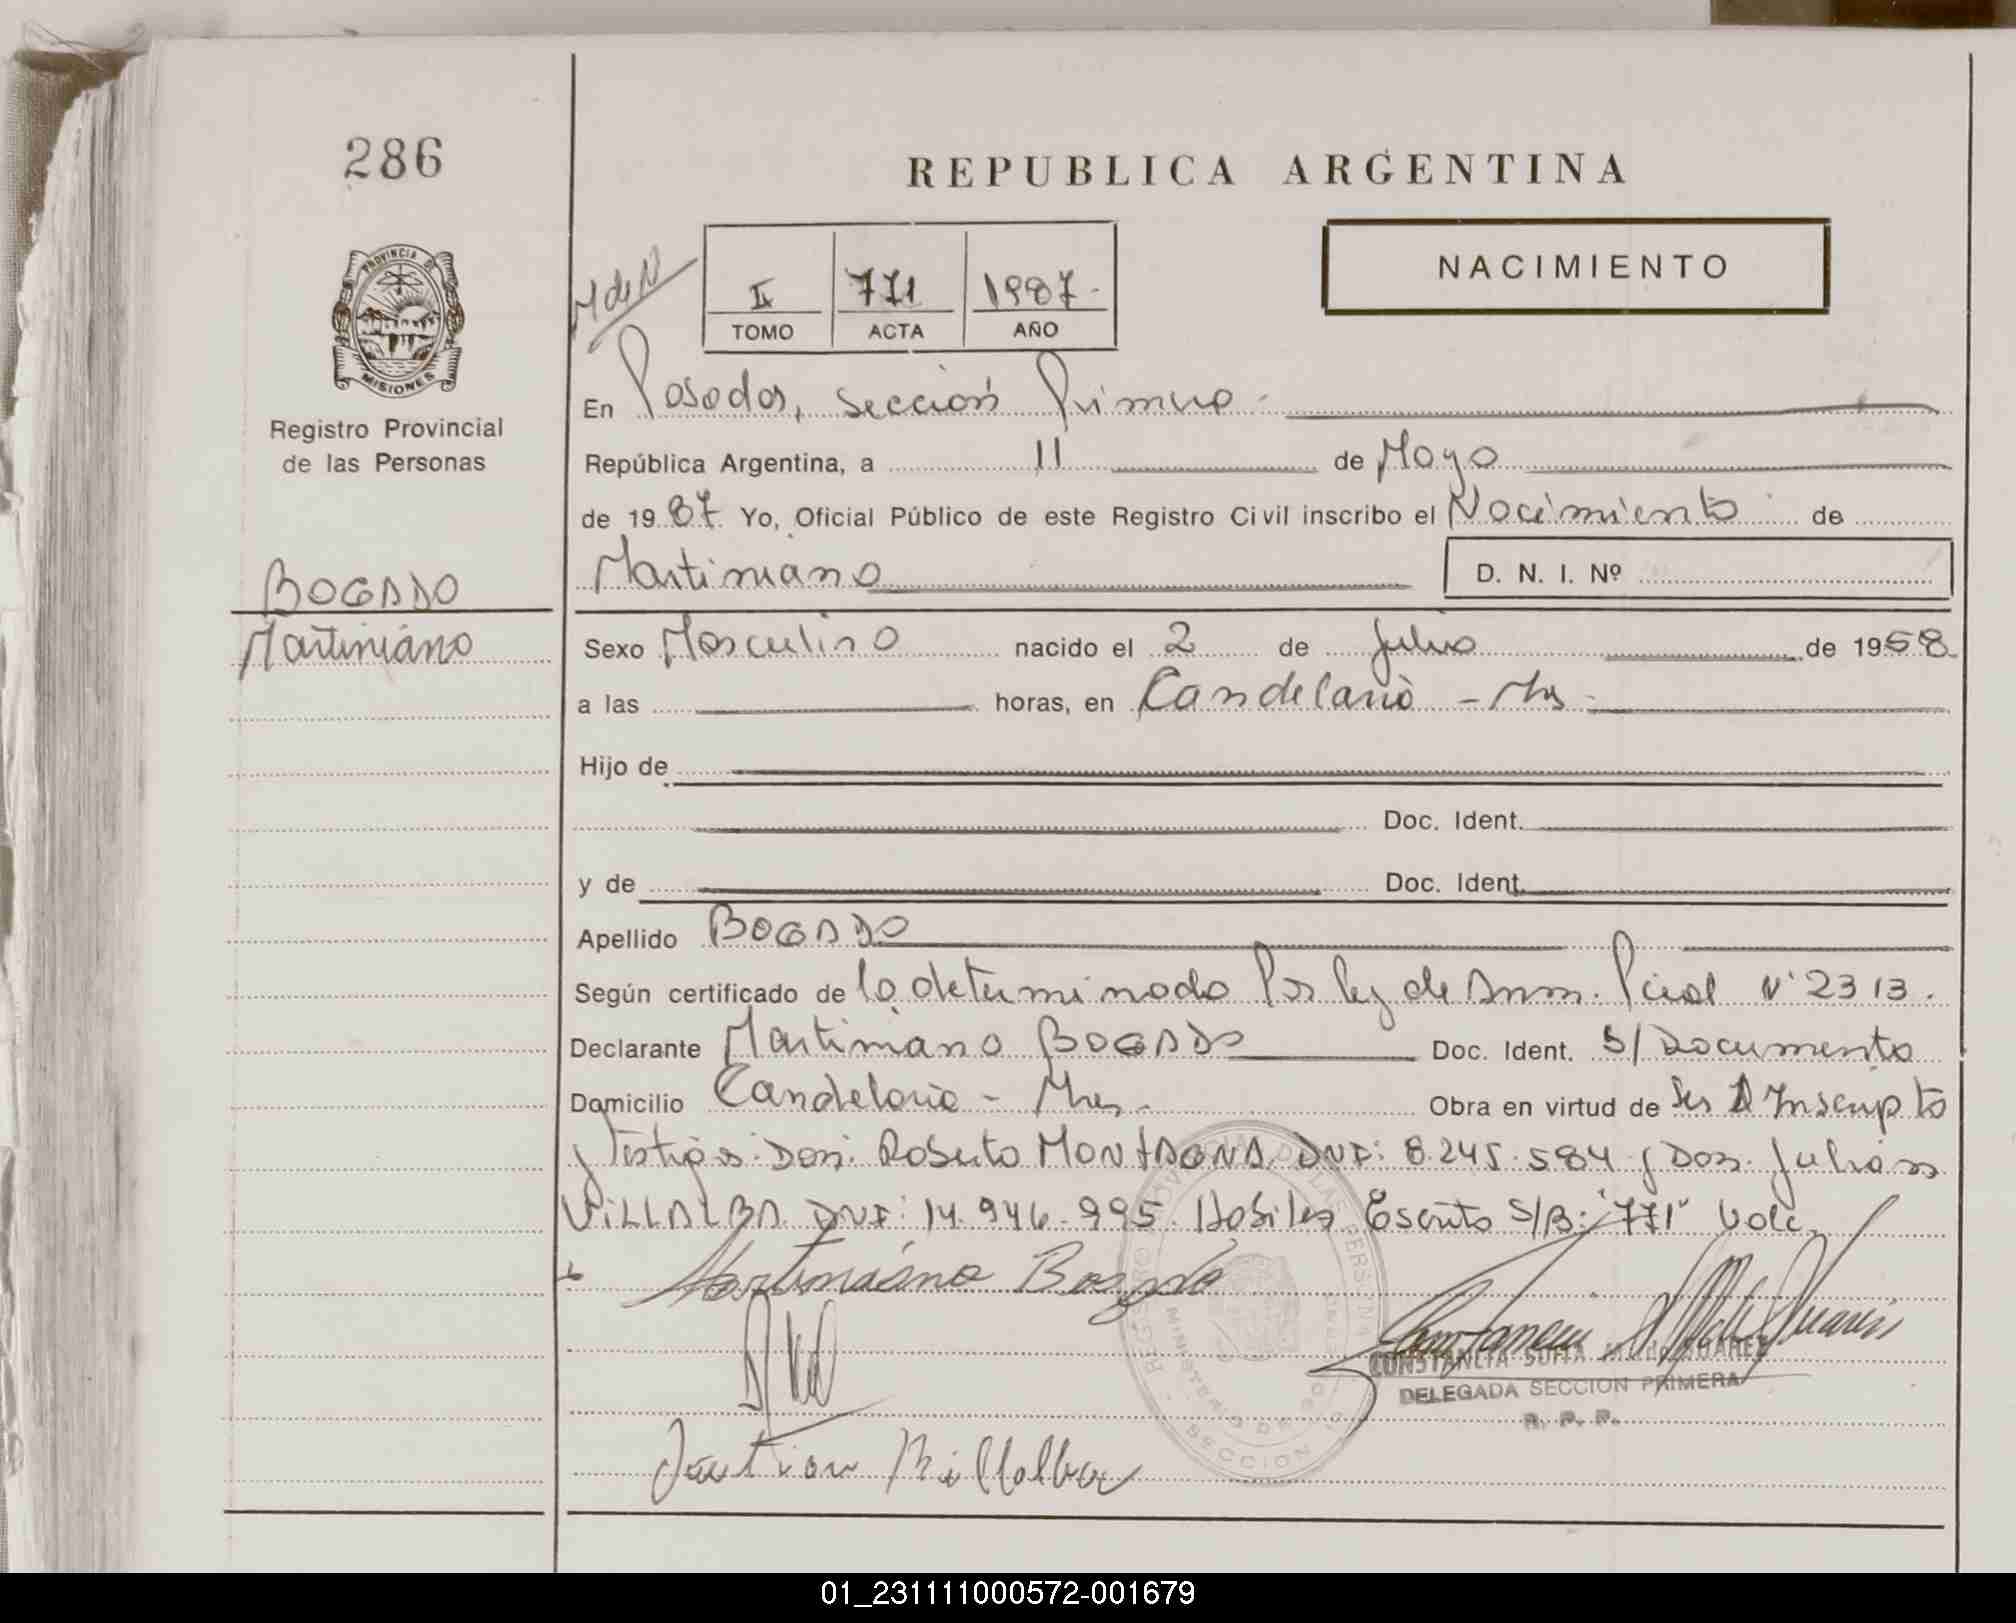 286
REPUBLICA ARGENTINA
M de N
II 771 1987-
TOMO ACTA AÑO
NACIMIENTO
PROVINCIA DE
MISIONES
Registro Provincial
de las Personas
En Posadas, sección Primera -
República Argentina, a 11 de Mayo
de 1987 Yo, Oficial Público de este Registro Civil inscribo el Nacimiento de
Martiniano D. N. I. Nº
BOGADO
Martiniano
Sexo Masculino nacido el 2 de Julio de 1968
a las horas, en Candelaria - Mns -
Hijo de
Doc. Ident.
y de Doc. Ident.
Apellido BOGADO
Según certificado de lo determinado Por ley de Amn. Pcial Nº 2313.
Declarante Martiniano BOGADO Doc. Ident. S/Documento
Domicilio Candelaria - Mnes - Obra en virtud de Ser Inscripto
y Testigos: Don: Roberto MONTAGNA DNI: 8.245.584 y Don. Julian
VILLALBA DNI: 14.946.995. Habiles Escrito S/B: "771" Vale.
Martiniano Bogado
CONSTANCIA SUITA SUAREZ
DELEGADA SECCION PRIMERA
R. P. P.
Villalba
01_231111000572-001679